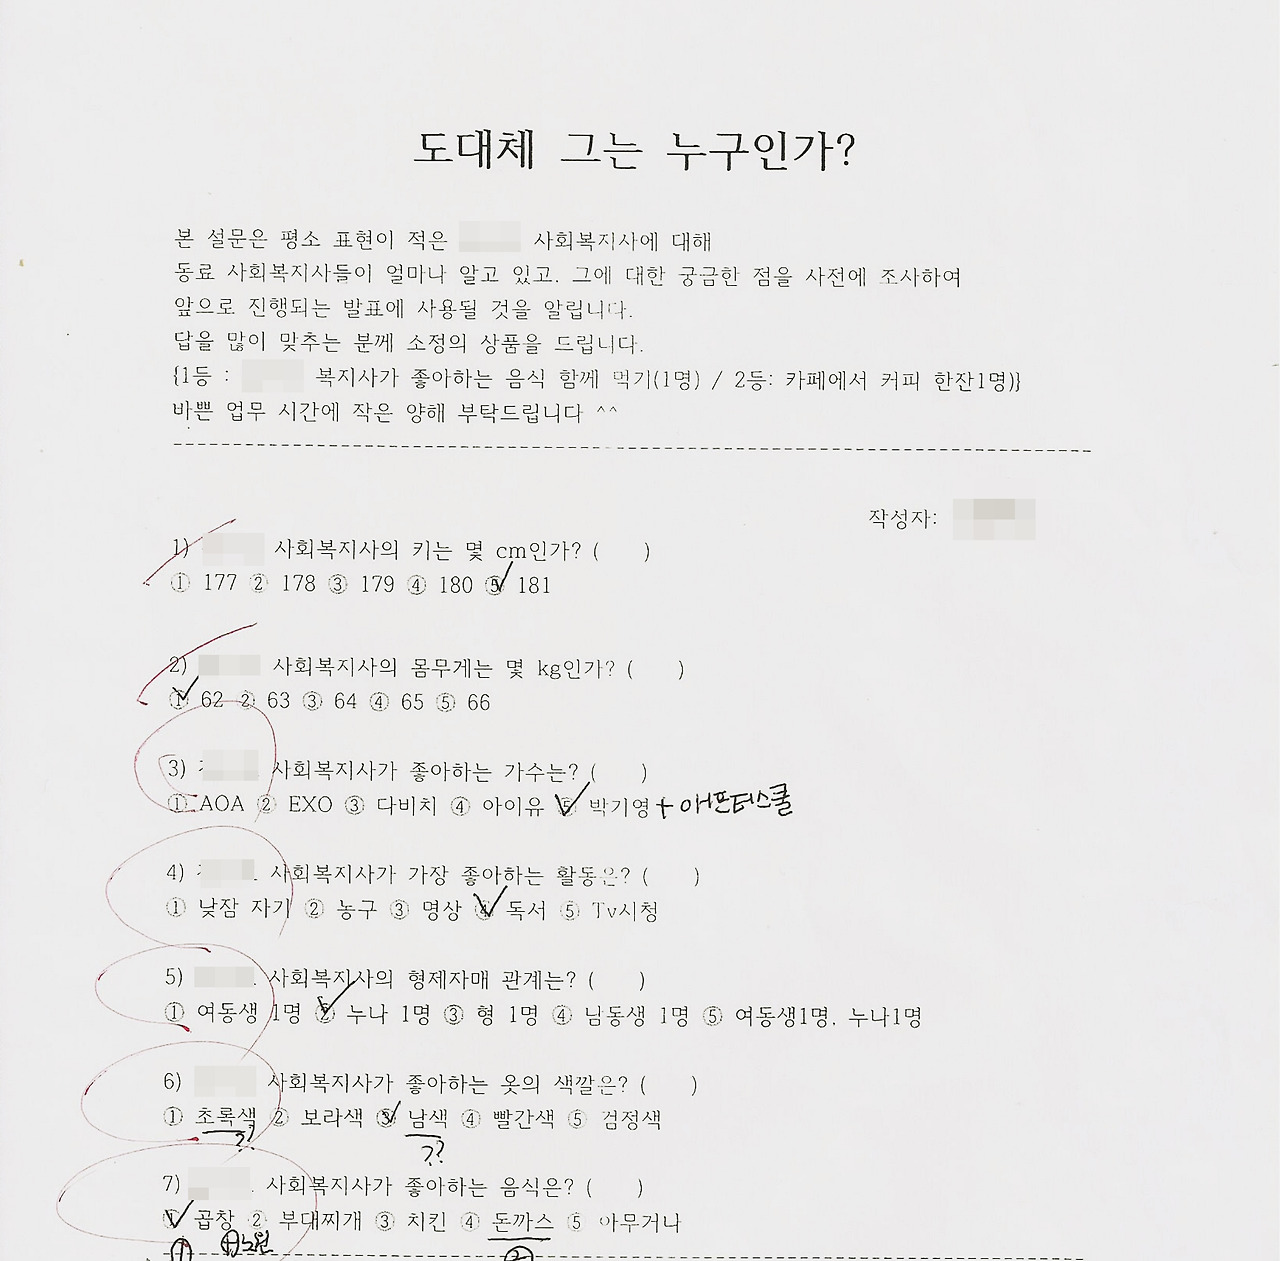 도대체 그는 누구인가?
본 설문은 평소 표현이 적은 사회복지사에 대해
동료 사회복지사들이 얼마나 알고 있고, 그에 대한 궁금한 점을 사전에 조사하여
앞으로 진행되는 발표에 사용될 것을 알립니다.
답을 많이 맞추는 분께 소정의 상품을 드립니다.
{1등 : 복지사가 좋아하는 음식 함께 먹기(1명) / 2등: 카페에서 커피 한잔1명)}
바쁜 업무 시간에 작은 양해 부탁드립니다 ^^
작성자:
1) 사회복지사의 키는 몇 cm인가? ( )
① 177 ② 178 ③ 179 ④ 180 ⑤ 181
2) 사회복지사의 몸무게는 몇 kg인가? ( )
① 62 ② 63 ③ 64 ④ 65 ⑤ 66
3) 사회복지사가 좋아하는 가수는? ( )
① AOA ② EXO ③ 다비치 ④ 아이유 ⑤ 박기영 + 애프터스쿨
4) 사회복지사가 가장 좋아하는 활동은? ( )
① 낮잠 자기 ② 농구 ③ 명상 ④ 독서 ⑤ Tv시청
5) 사회복지사의 형제자매 관계는? ( )
① 여동생 1명 ② 누나 1명 ③ 형 1명 ④ 남동생 1명 ⑤ 여동생1명, 누나1명
6) 사회복지사가 좋아하는 옷의 색깔은? ( )
① 초록색 ② 보라색 ③ 남색 ④ 빨간색 ⑤ 검정색
?? ??
7) 사회복지사가 좋아하는 음식은? ( )
① 곱창 ② 부대찌개 ③ 치킨 ④ 돈까스 ⑤ 아무거나
① ②